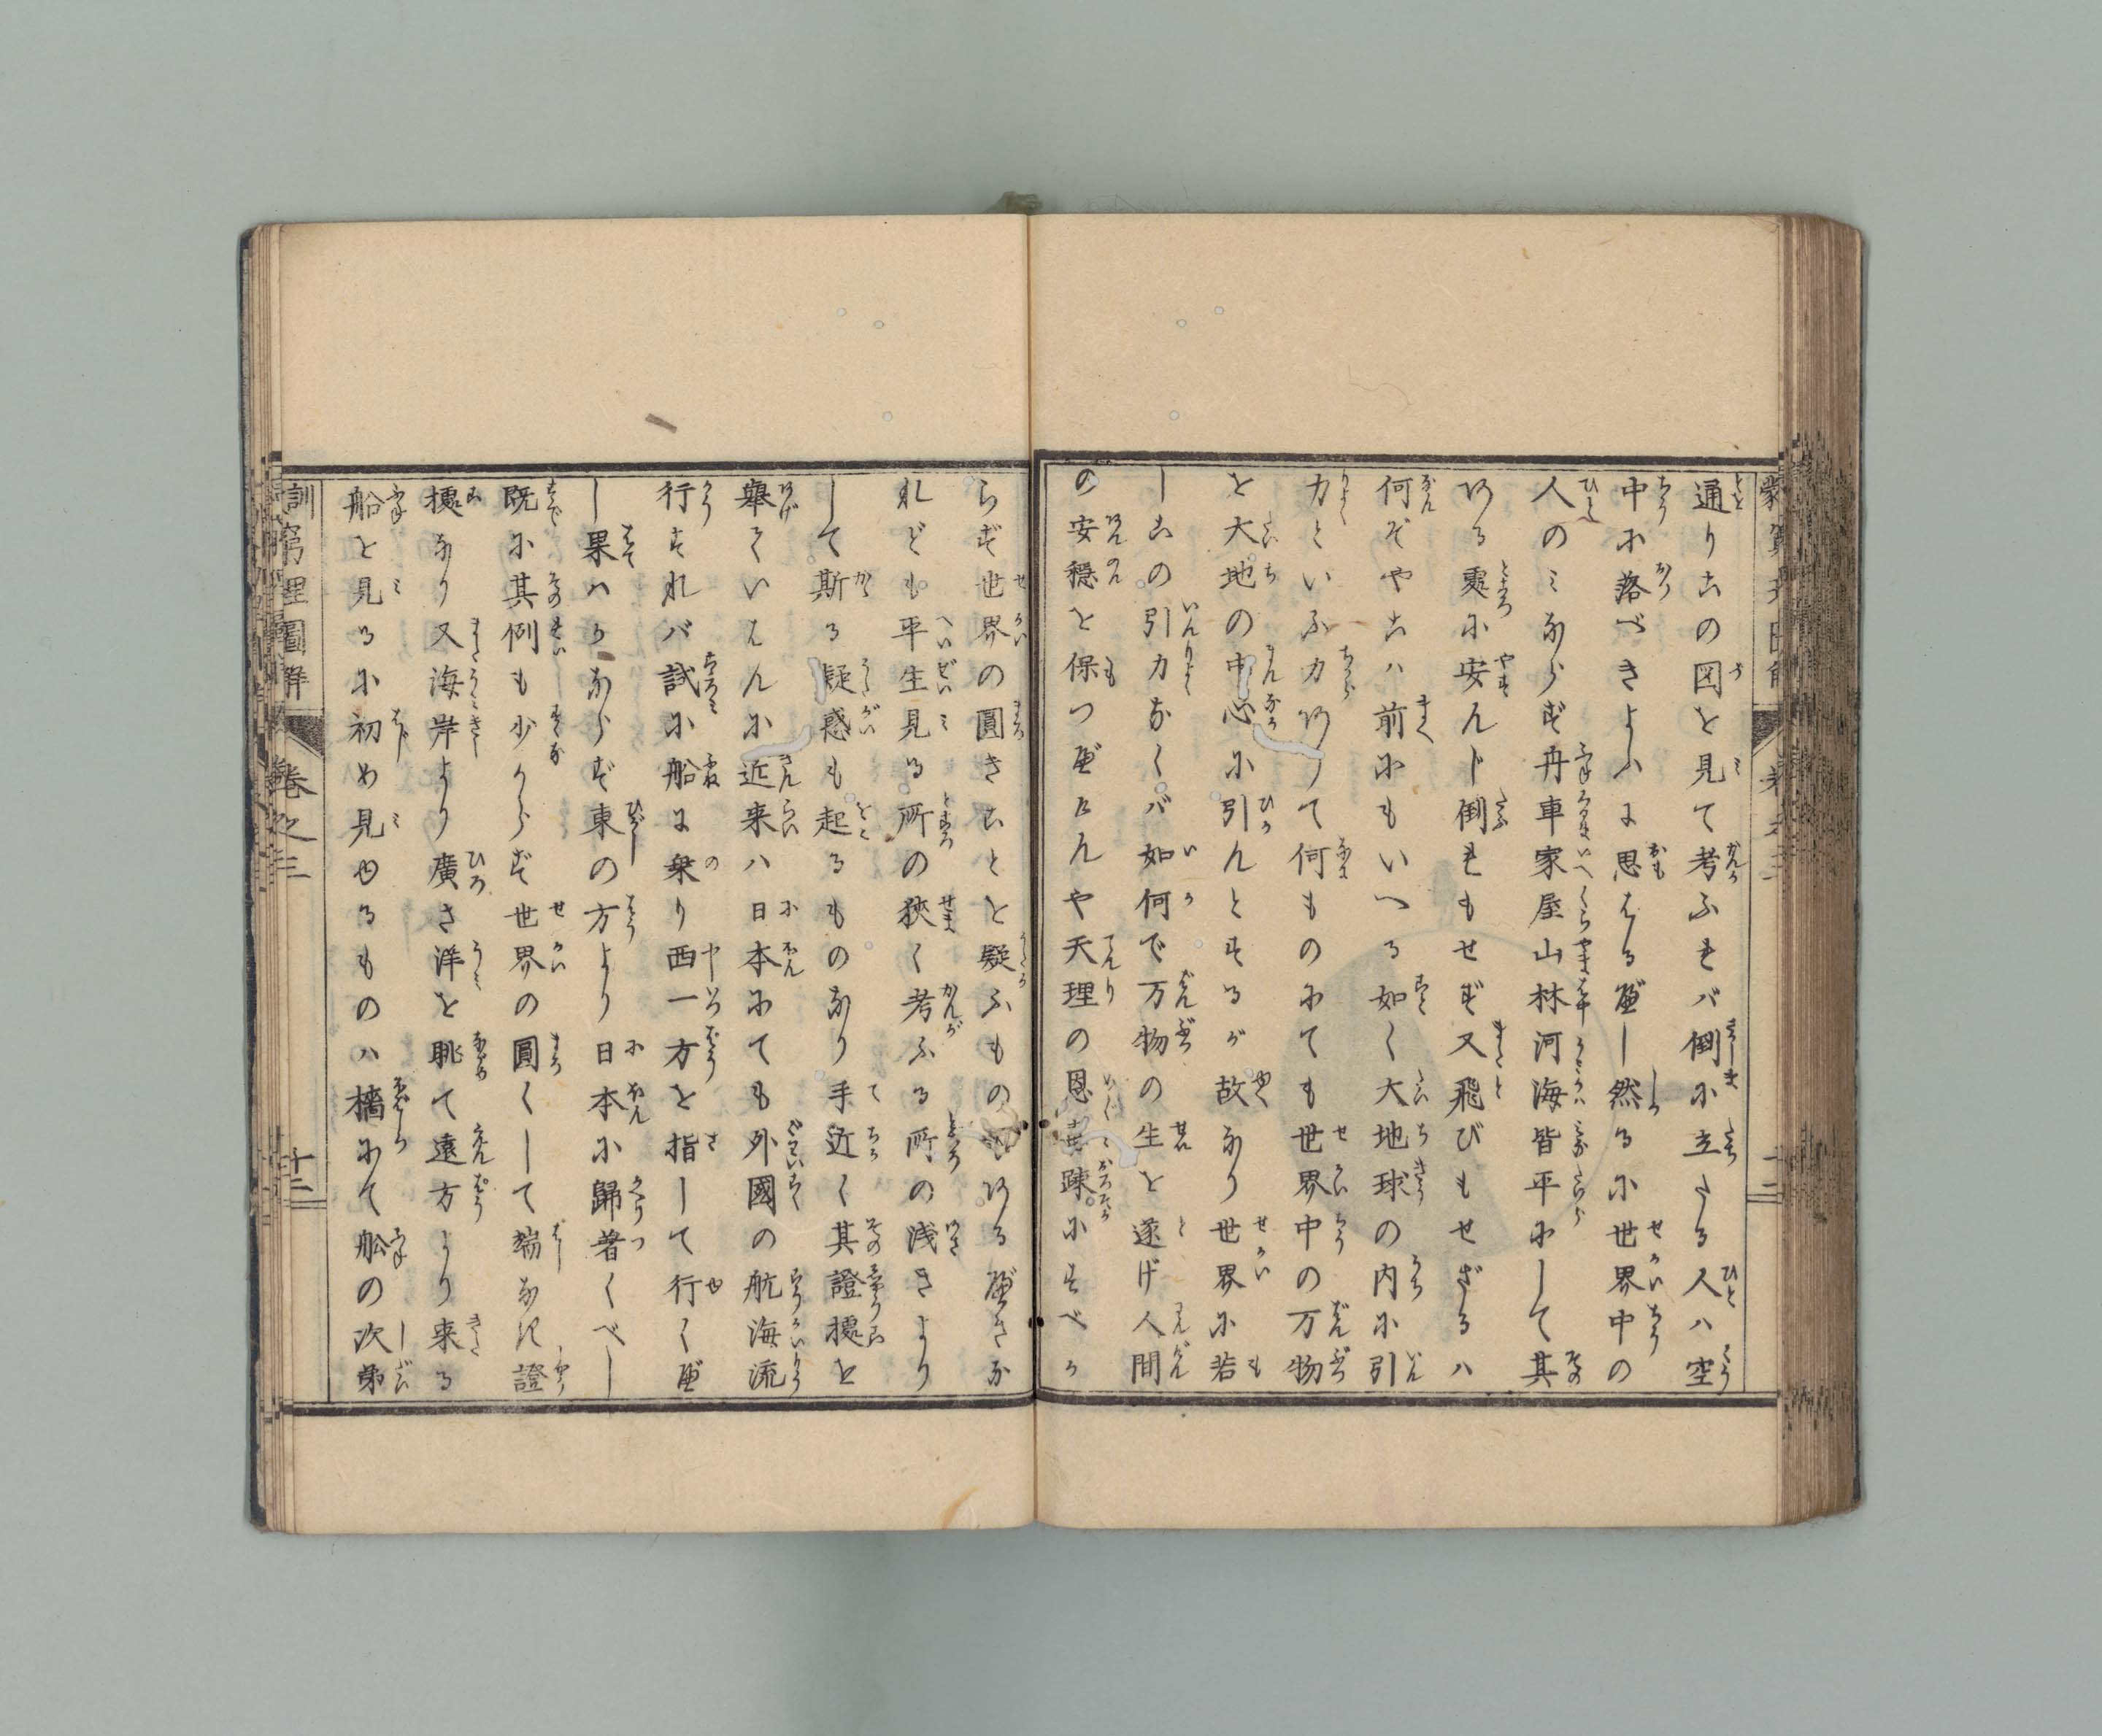 通り古の図を見て考ふれバ倒に立たる人ハ空
中に落べきように思はるべし然るに世界中の
人のミならず舟車家屋山林河海皆平にして其
ある処に安んじ倒れもせず又飛びもせざるハ
何ぞやこハ前にもいへる如く大地球の内に引
力といふ力ありて何ものにても世界中の万物
を大地の中心に引んとするが故なり世界に若
しこの引力なくバ如何で万物の生を遂げ人間
の安穏を保つべけんや天理の恩 疎にすべか
らず世界の圓きことを疑ふもの あるべきな
れども平生見る所の狭く考ふる所の浅きより
して斯る疑惑も起るものなり手近く其證據を
舉ていはんに近来ハ日本にても外國の航海流
行すれバ試に船に乗り西一方を指して行くべ
し果ハかならず東の方より日本に歸着くべし
既に其例も少からず世界の圓くして端なき證
據なり又海岸より廣き洋を眺て遠方より来る
船を見るに初め見ゆるものハ檣にて舩の次第
訓窮理圖解 巻之三 十二